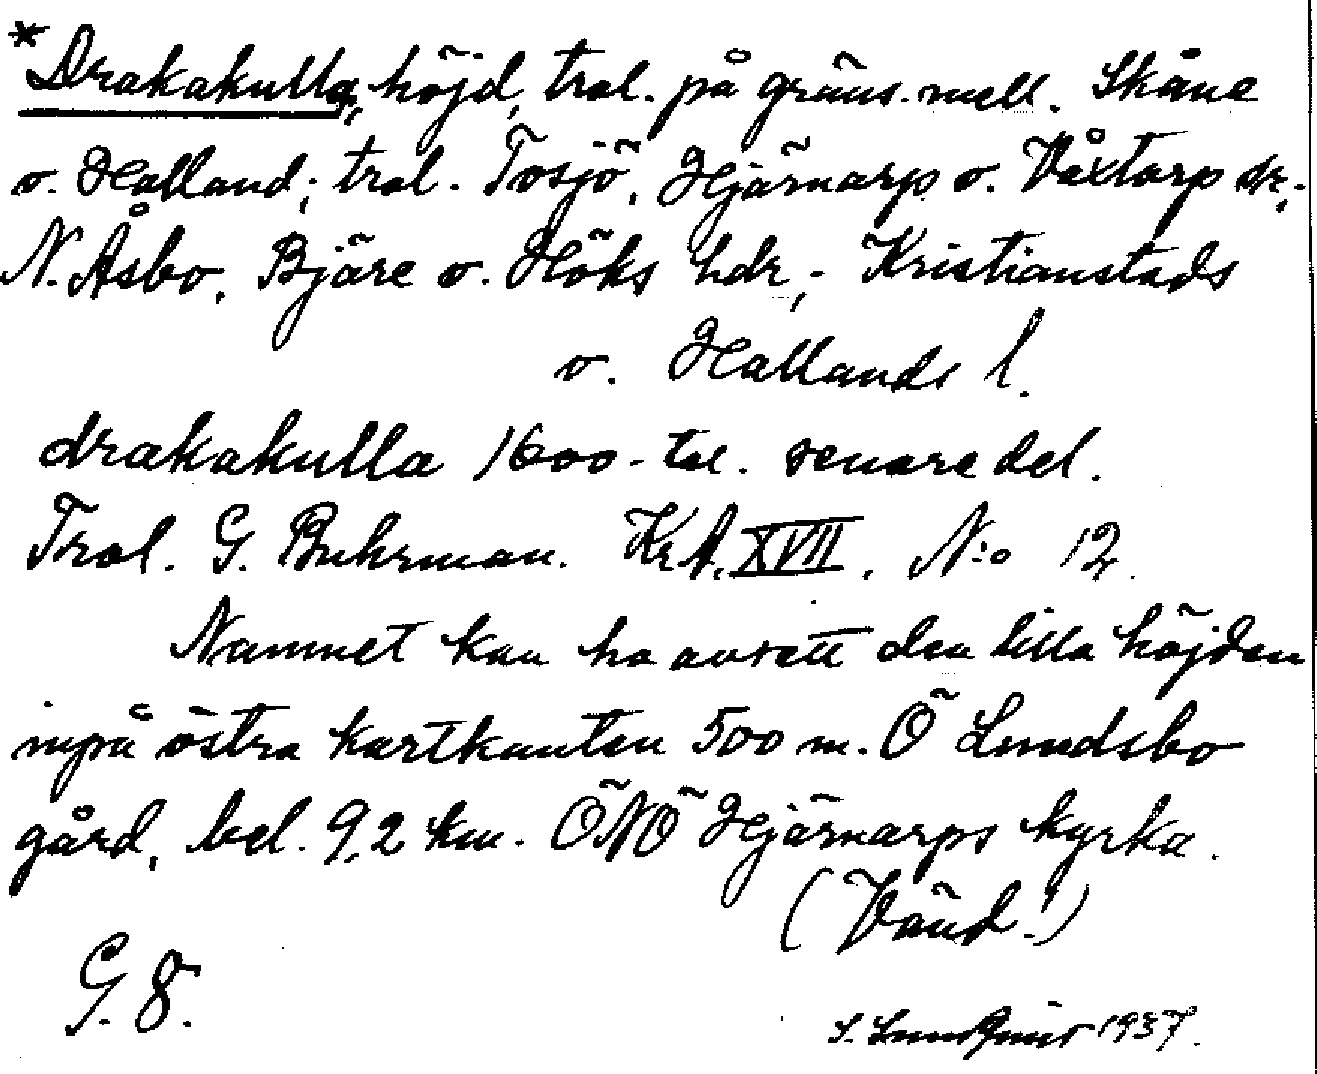 *Drakakulla, höjd, trol. på gräns. mell. Skåne
o. Halland; trol. Tosjö, Hjärnarp o. Våxtorp sk;
N. Åsbo, Bjäre o. Höks hdr; Kristianstads
o. Hallands l.
drakakulla 1600-tal. senare del.
Trol. G. Buhrman. KrA. XVII. N:o 12.
Namnet kan ha avsett den lilla höjden
inpå östra kartkanten 500 m. Ö Lundsbo
gård, bel. 9,2 km. ÖNÖ Hjärnarps kyrka.
(Vänd!)
G. 8.
S. Lundquist 1937.